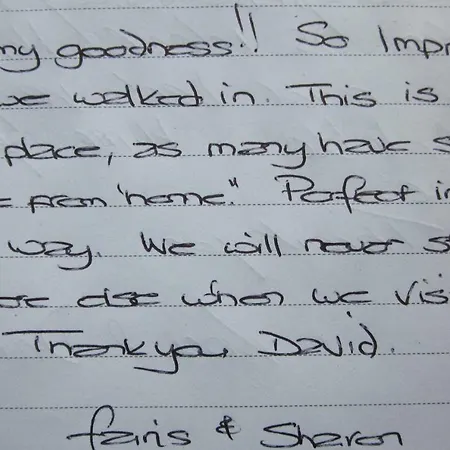 my goodness!! So Impr
we walked in. This is
place, as many have s
e from "home." Perfect in
way. We will never s
re else when we vis
Thank you, David.
Faris & Sharon